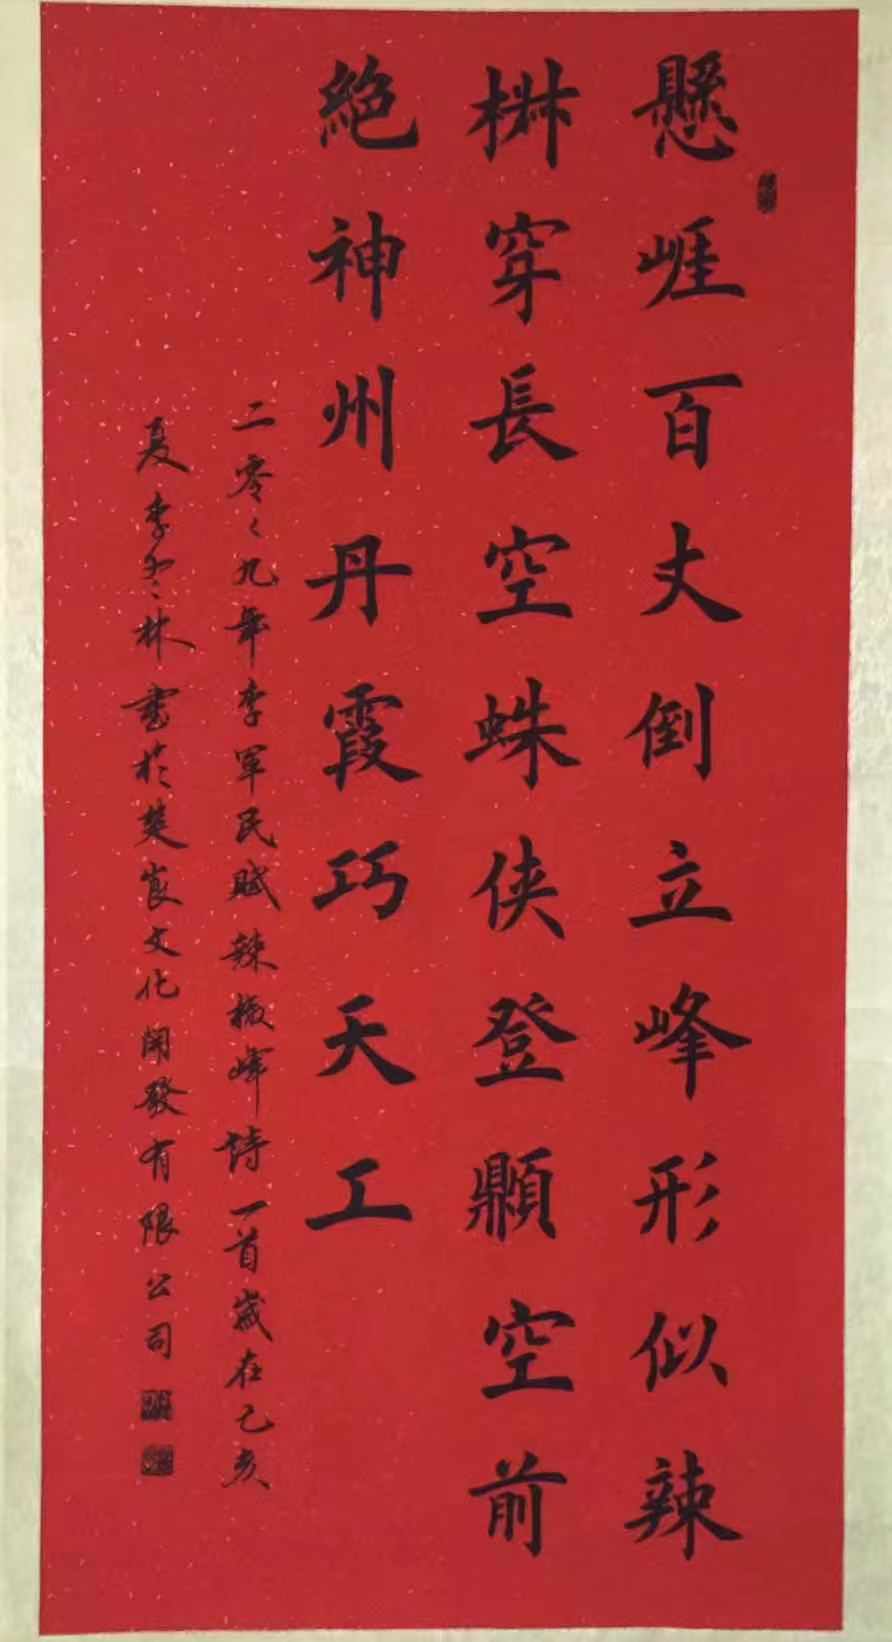 懸崕百丈倒立峰形似辣
椒穿長空蛛侠登顛空前
絶神州丹霞巧天工
二零〻九年李軍民賦辣椒峰詩一首歲在己亥
夏李林書於楚崀文化開發有限公司